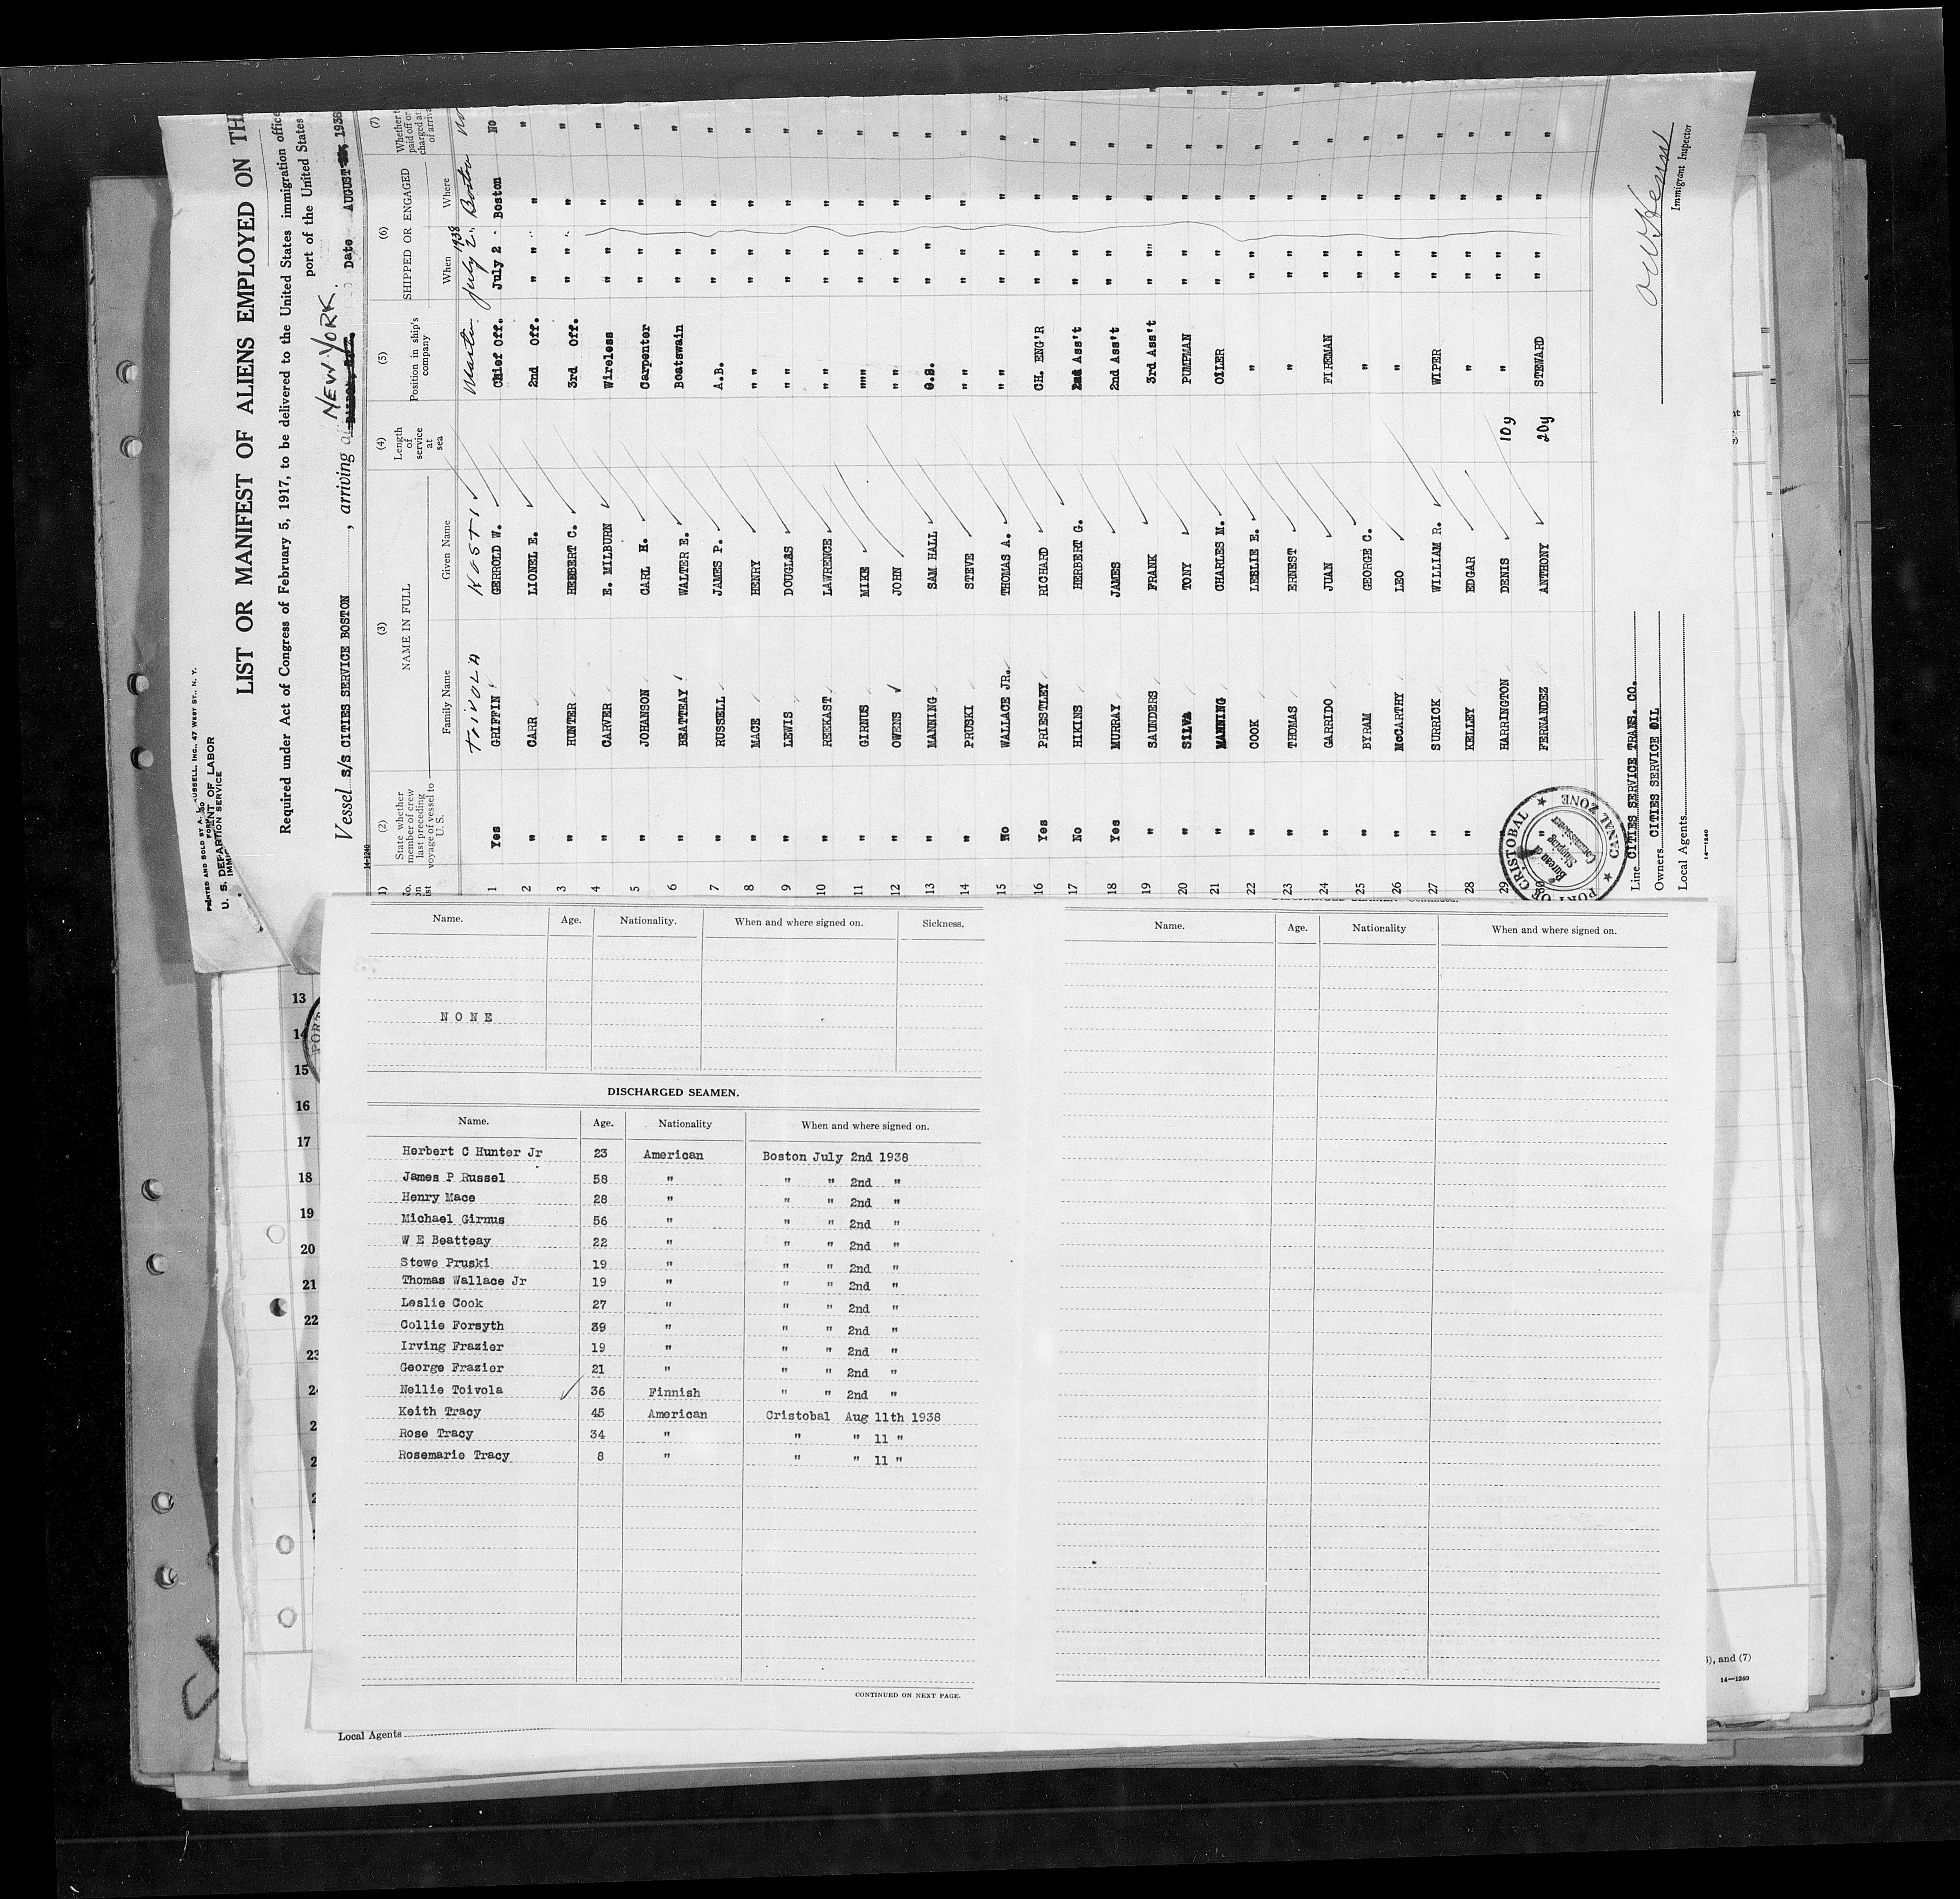 PRINTED AND SOLD BY A. RUSSELL, INC., 47 WEST ST., N. Y.
U. S. DEPARTMENT OF LABOR
LIST OR MANIFEST OF ALIENS EMPLOYED ON TH
Required under Act of Congress of February 5, 1917, to be delivered to the United States immigration office
port of the United States
NEW YORK.
Vessel S/S CITIES SERVICE BOSTON, arriving at Date AUGUST 1938
14-1240
(2) (3) (4) (5) (6) (7)
State whether member of crew last preceding voyage of vessel to U. S.
NAME IN FULL
Family Name Given Name
Length of service at sea
Position in ship's company
SHIPPED OR ENGAGED
When Where
TOIVOLA KOSTI Master July 2, 1938 Boston No
1 Yes GRIFFIN GERROLD W. Chief Off. July 2 Boston No
2 " CARR LIONEL E. 2nd Off. " " " "
3 " HUNTER HERBERT C. 3rd Off. " " " "
4 " CARVER E. MILBURN Wireless " " " "
5 " JOHANSON CARL H. Carpenter " " " "
6 " BEATTEAY WALTER E. Boatswain " " " "
7 " RUSSELL JAMES P. A.B. " " " "
8 " MACE HENRY " " " " " "
9 " LEWIS DOUGLAS " " " " " "
10 " REEKAST LAWRENCE " " " " " "
11 " GIRNUS MIKE "" " " " "
12 " OWENS JOHN " " " " " "
13 " MANNING SAM HALL O.S. " " " "
14 " PRUSKI STEVE " " " " " "
15 No WALLACE JR. THOMAS A. " " " " " "
16 Yes PRIESTLEY RICHARD CH. ENG'R " " " "
17 No HIKINS HERBERT G. 2nd Ass't " " " "
18 Yes MURRAY JAMES 2nd Ass't " " " "
19 " SAUNDERS FRANK 3rd Ass't " " " "
20 " SILVA TONY PUMPMAN " " " "
21 " MANNING CHARLES M. OILER " " " "
22 " COOK LESLIE E. " " " " "
23 " THOMAS ERNEST " " " " "
24 " GARRIDO JUAN FIREMAN " " " "
25 " BYRAM GEORGE C. " " " " "
26 " McCARTHY LEO " " " " "
27 " SURRICK WILLIAM R. WIPER " " " "
28 " KELLEY EDGAR " " " " "
29 " HARRINGTON DENIS 10y " " " " "
" FERNANDEZ ANTHONY 20y STEWARD " " " "
PORT OF CRISTOBAL ★ CANAL ZONE ★
Bureau of Shipping Commissioner
Line CITIES SERVICE TRANS. CO.
Owners CITIES SERVICE OIL
Local Agents
14-1240
Immigrant Inspector
Name. Age. Nationality. When and where signed on. Sickness.
NONE
DISCHARGED SEAMEN.
Name. Age. Nationality When and where signed on.
Herbert C Hunter Jr 23 American Boston July 2nd 1938
James P Russel 58 " " " 2nd "
Henry Mace 28 " " " 2nd "
Michael Girnus 56 " " " 2nd "
W E Beatteay 22 " " " 2nd "
Stewe Pruski 19 " " " 2nd "
Thomas Wallace Jr 19 " " " 2nd "
Leslie Cook 27 " " " 2nd "
Collie Forsyth 39 " " " 2nd "
Irving Frazier 19 " " " 2nd "
George Frazier 21 " " " 2nd "
Nellie Toivola 36 Finnish " " 2nd "
Keith Tracy 45 American Cristobal Aug 11th 1938
Rose Tracy 34 " " " 11 "
Rosemarie Tracy 8 " " " 11 "
CONTINUED ON NEXT PAGE.
Name. Age. Nationality When and where signed on.
13
14
15
16
17
18
19
20
21
22
23
Local Agents
, and (7)
14-1240